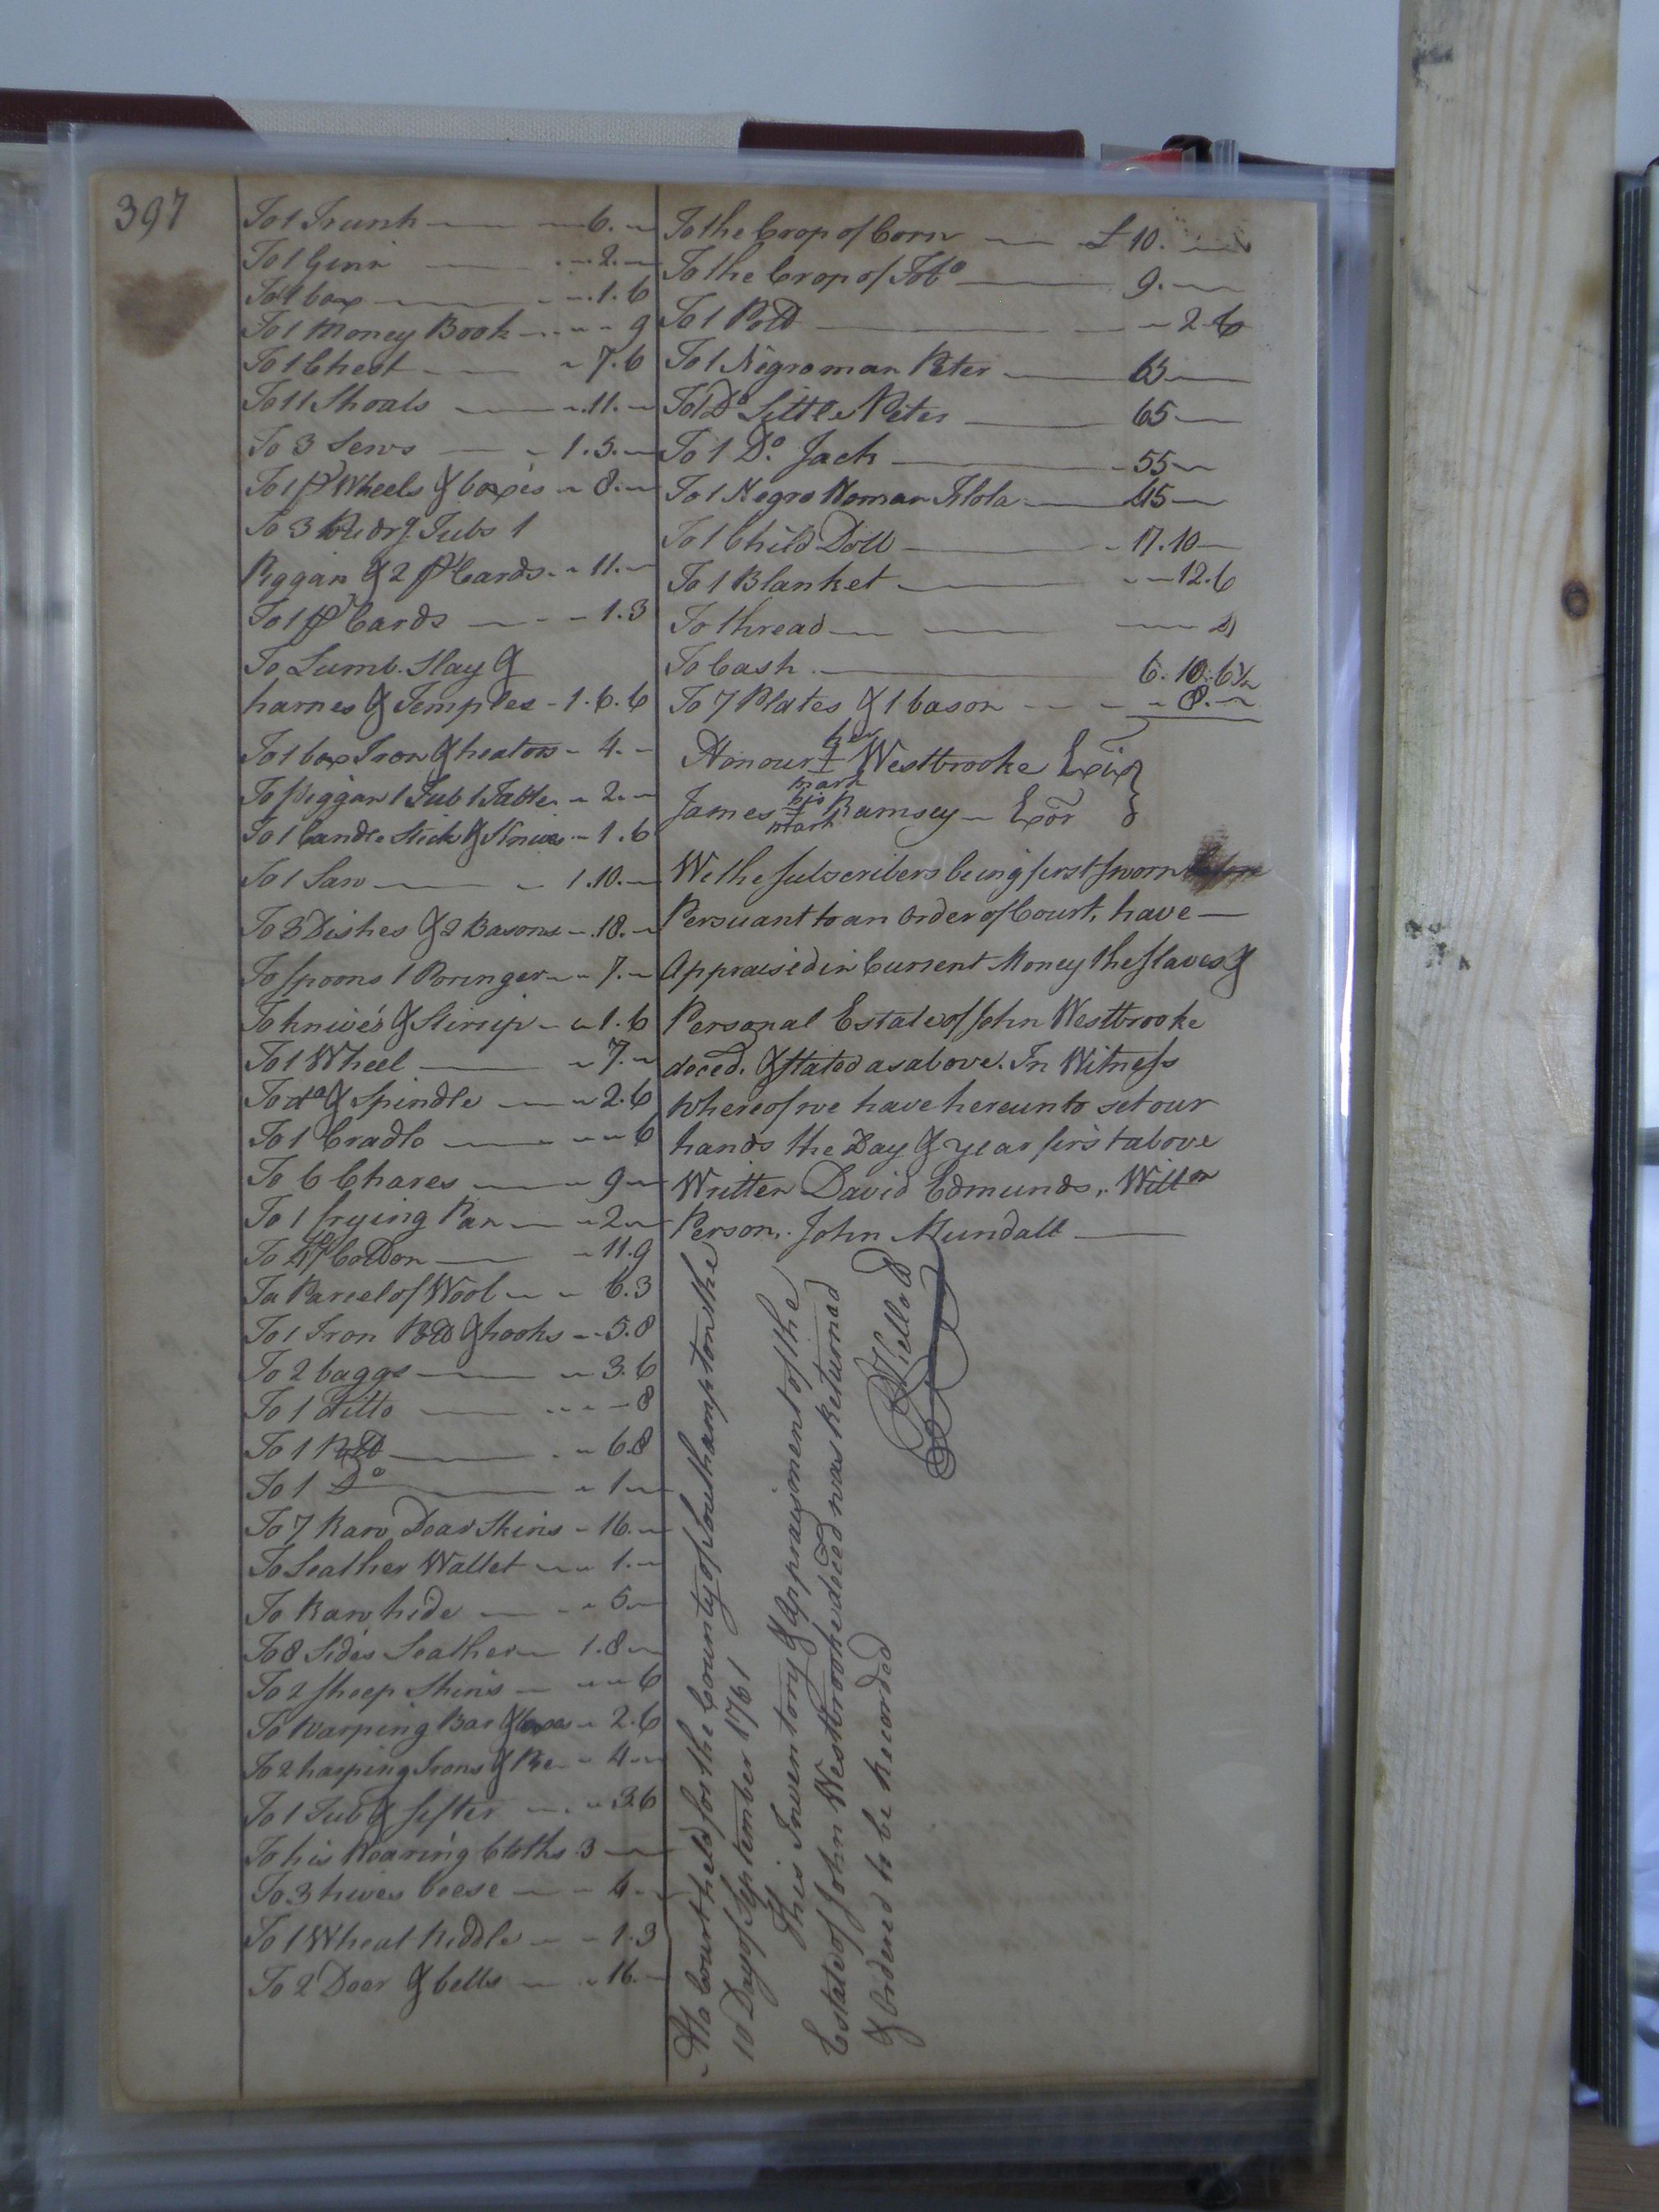 397
To 1 Trunk 6.
To 1 Gunn 2.
To 1 box 1.6
To 1 Money Book 9
To 1 Chest 7.6
To 11 Shoals 11.
To 3 Sews 1.5.
To 1 pr Wheels & boxes 8.
To 3 Tubs 1
Piggan & 2 pr Cards 11.
To 1 pr Cards 1.3
To Lumb. Slay &
harnes & Temples 1.6.6
To 1 box Iron & heators 4.
To Piggan 1 Tub 1 Table 2.
To 1 Candle Stick & 1.6
To 1 Saw 1.10.
To 3 Dishes & 2 Basons 18.
To Spoons 1 Poringer 7.
To knives & Stirup 1.6
To 1 Wheel 7.
To do & Spindle 2.6
To 1 Cradle 6
To 6 Chares 9
To 1 frying Pan 2
To Cotton 11.9
To a Parcel of Wool 6.3
To 1 Iron Pott & hooks 5.8
To 2 baggs 3.6
To 1 ditto 8
To 1 Pott 6.8
To 1 Do 1
To 7 Raw Dear Skins 16.
To Leather Wallet 1.
To Raw hide 5
To 8 Sides Leather 1.8
To 2 sheep Skins 6
To Warping Bar & boxes 2.6
To 2 harping Irons & 4
To 1 Tub & sifter 3.6
To his Wearing Cloths 3
To 3 hives beese 4.
To 1 Wheat Riddle 1.3
To 2 Deer & bells 16.
To the Crop of Corn £ 10.
To the Crop of Tobo 9.
To 1 Pott 2.6
To 1 Negro man Peter 65
To 1 Do Little Peter 65
To 1 Do. Jack 55
To 1 Negro Woman 45
To 1 Child Doll 17.10
To 1 Blanket 12.6
To thread
To Cash 6.10.6½
To 7 Plates & 1 bason 8.
her
Honour I Westbrooke Exix
mark
his
James Ramsey Exor
mark
We the subscribers being first sworn
Persuant to an Order of Court, have
Appraised in Current Money the slaves &
Personal Estate of John Westbrooke
deced. & stated as above. In Witness
whereof we have hereunto set our
hands the Day & year first above
Written David Edmunds, Willm
Person. John Mundall
At a Court held for the County of Southampton the
10 Day of September 1761
This Inventory & Appraisment of the
Estate of John Westbrooke deced was Returned
& Ordered to be Recorded